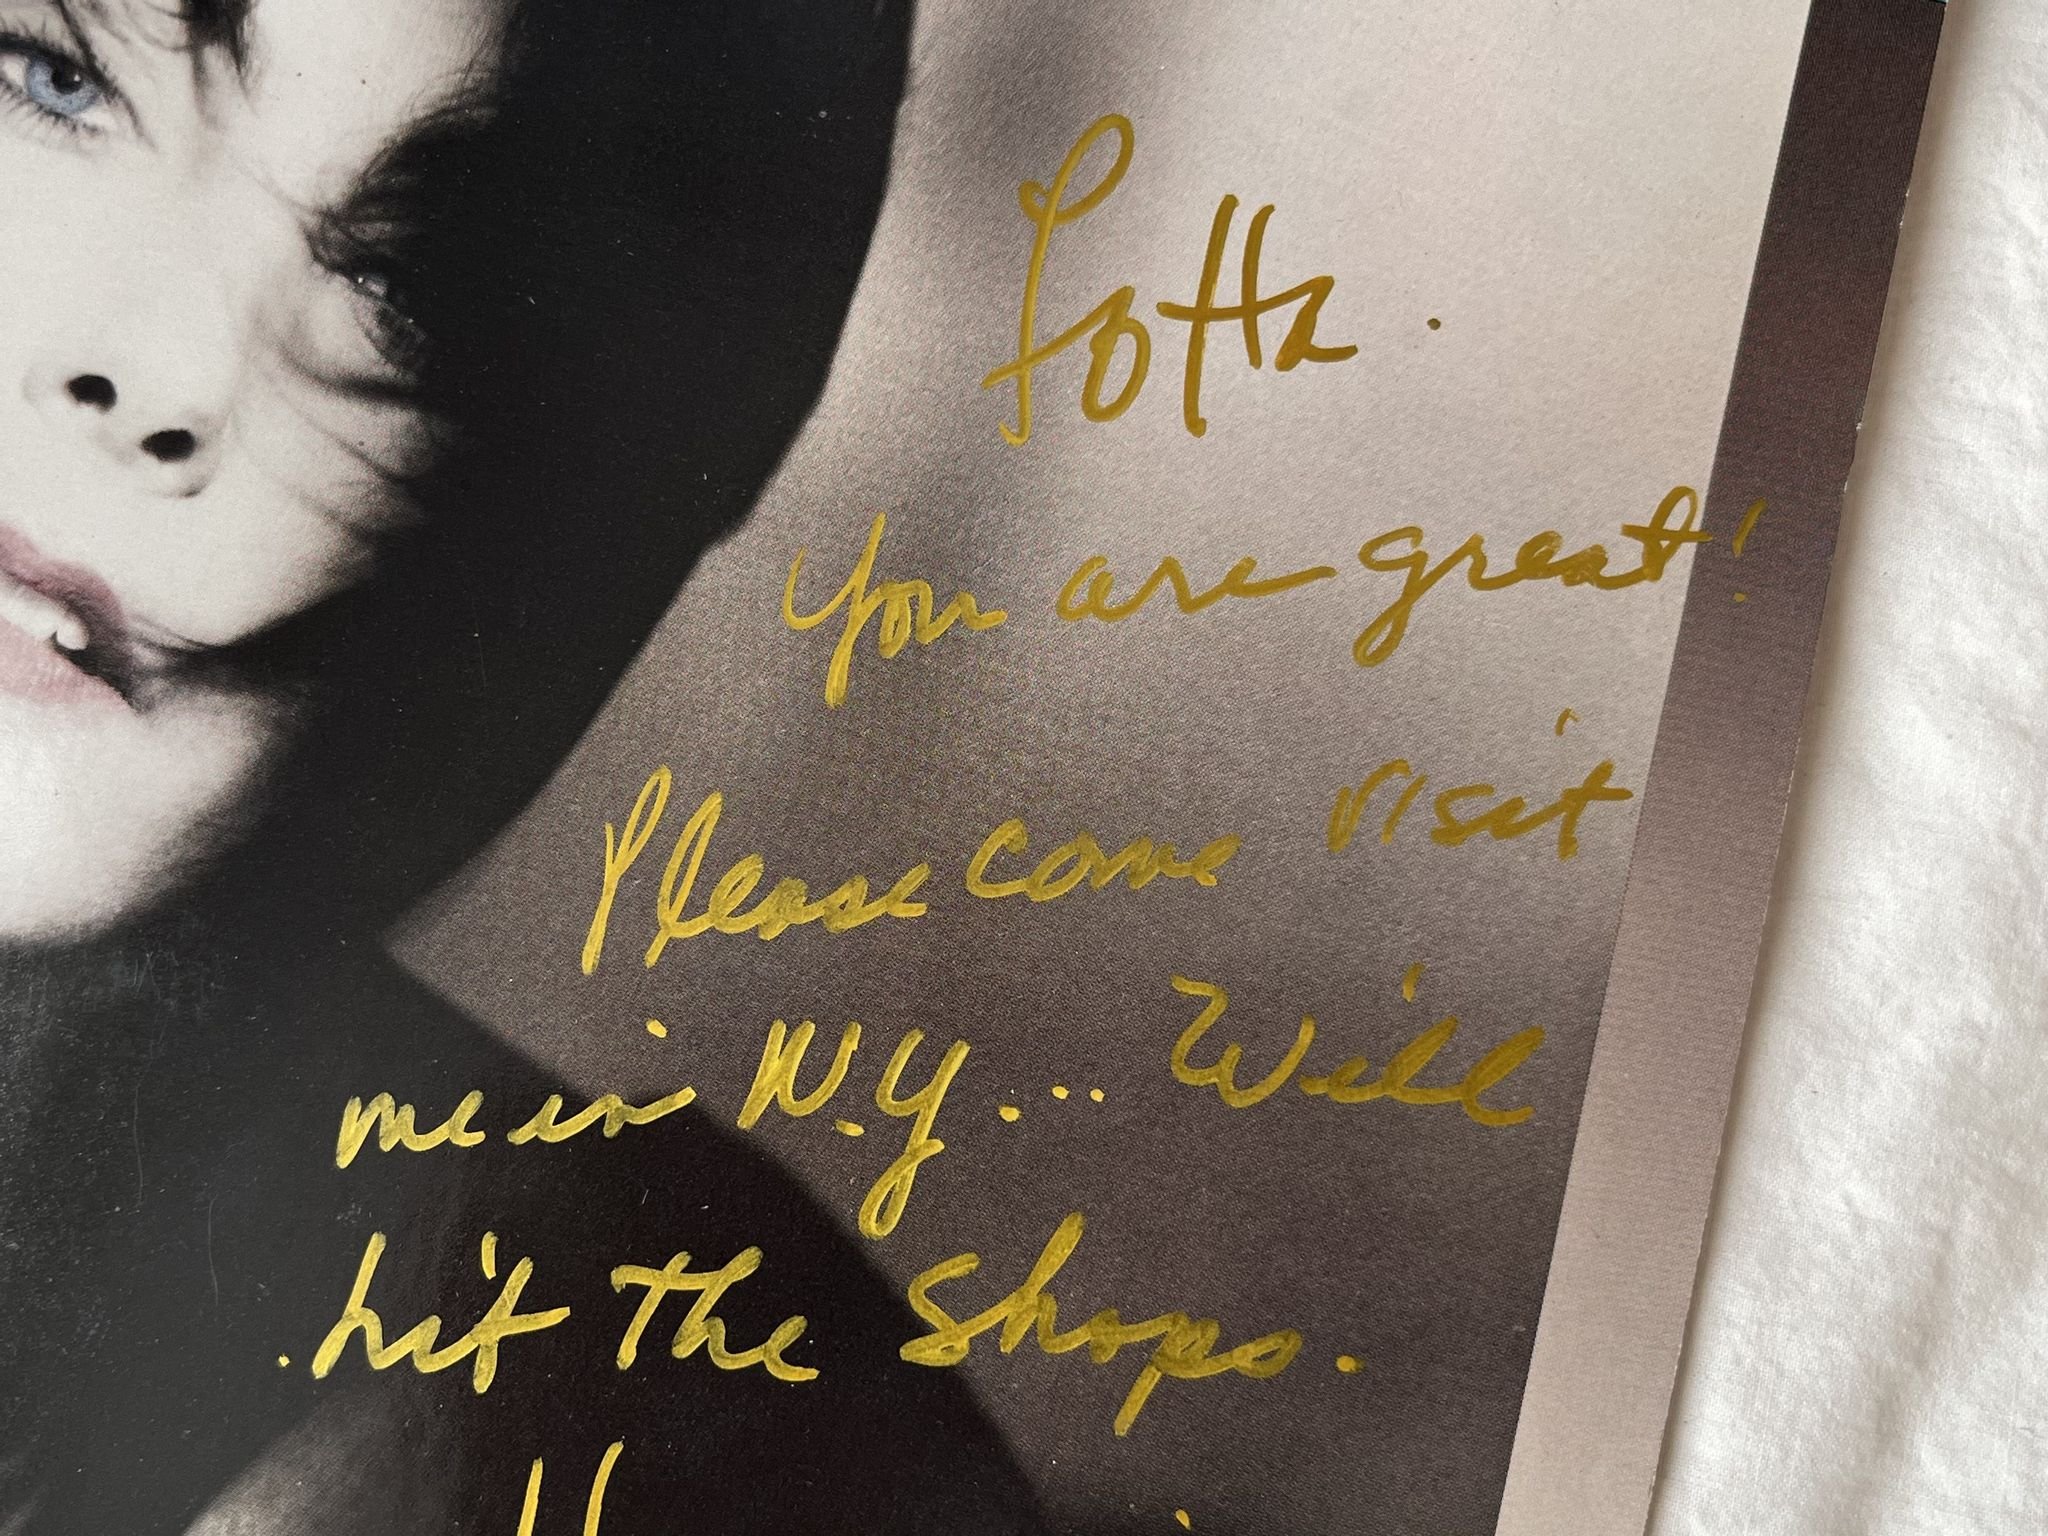 Lotta.
You are great!
Please come visit
me in N.Y... Will
hit the shops.